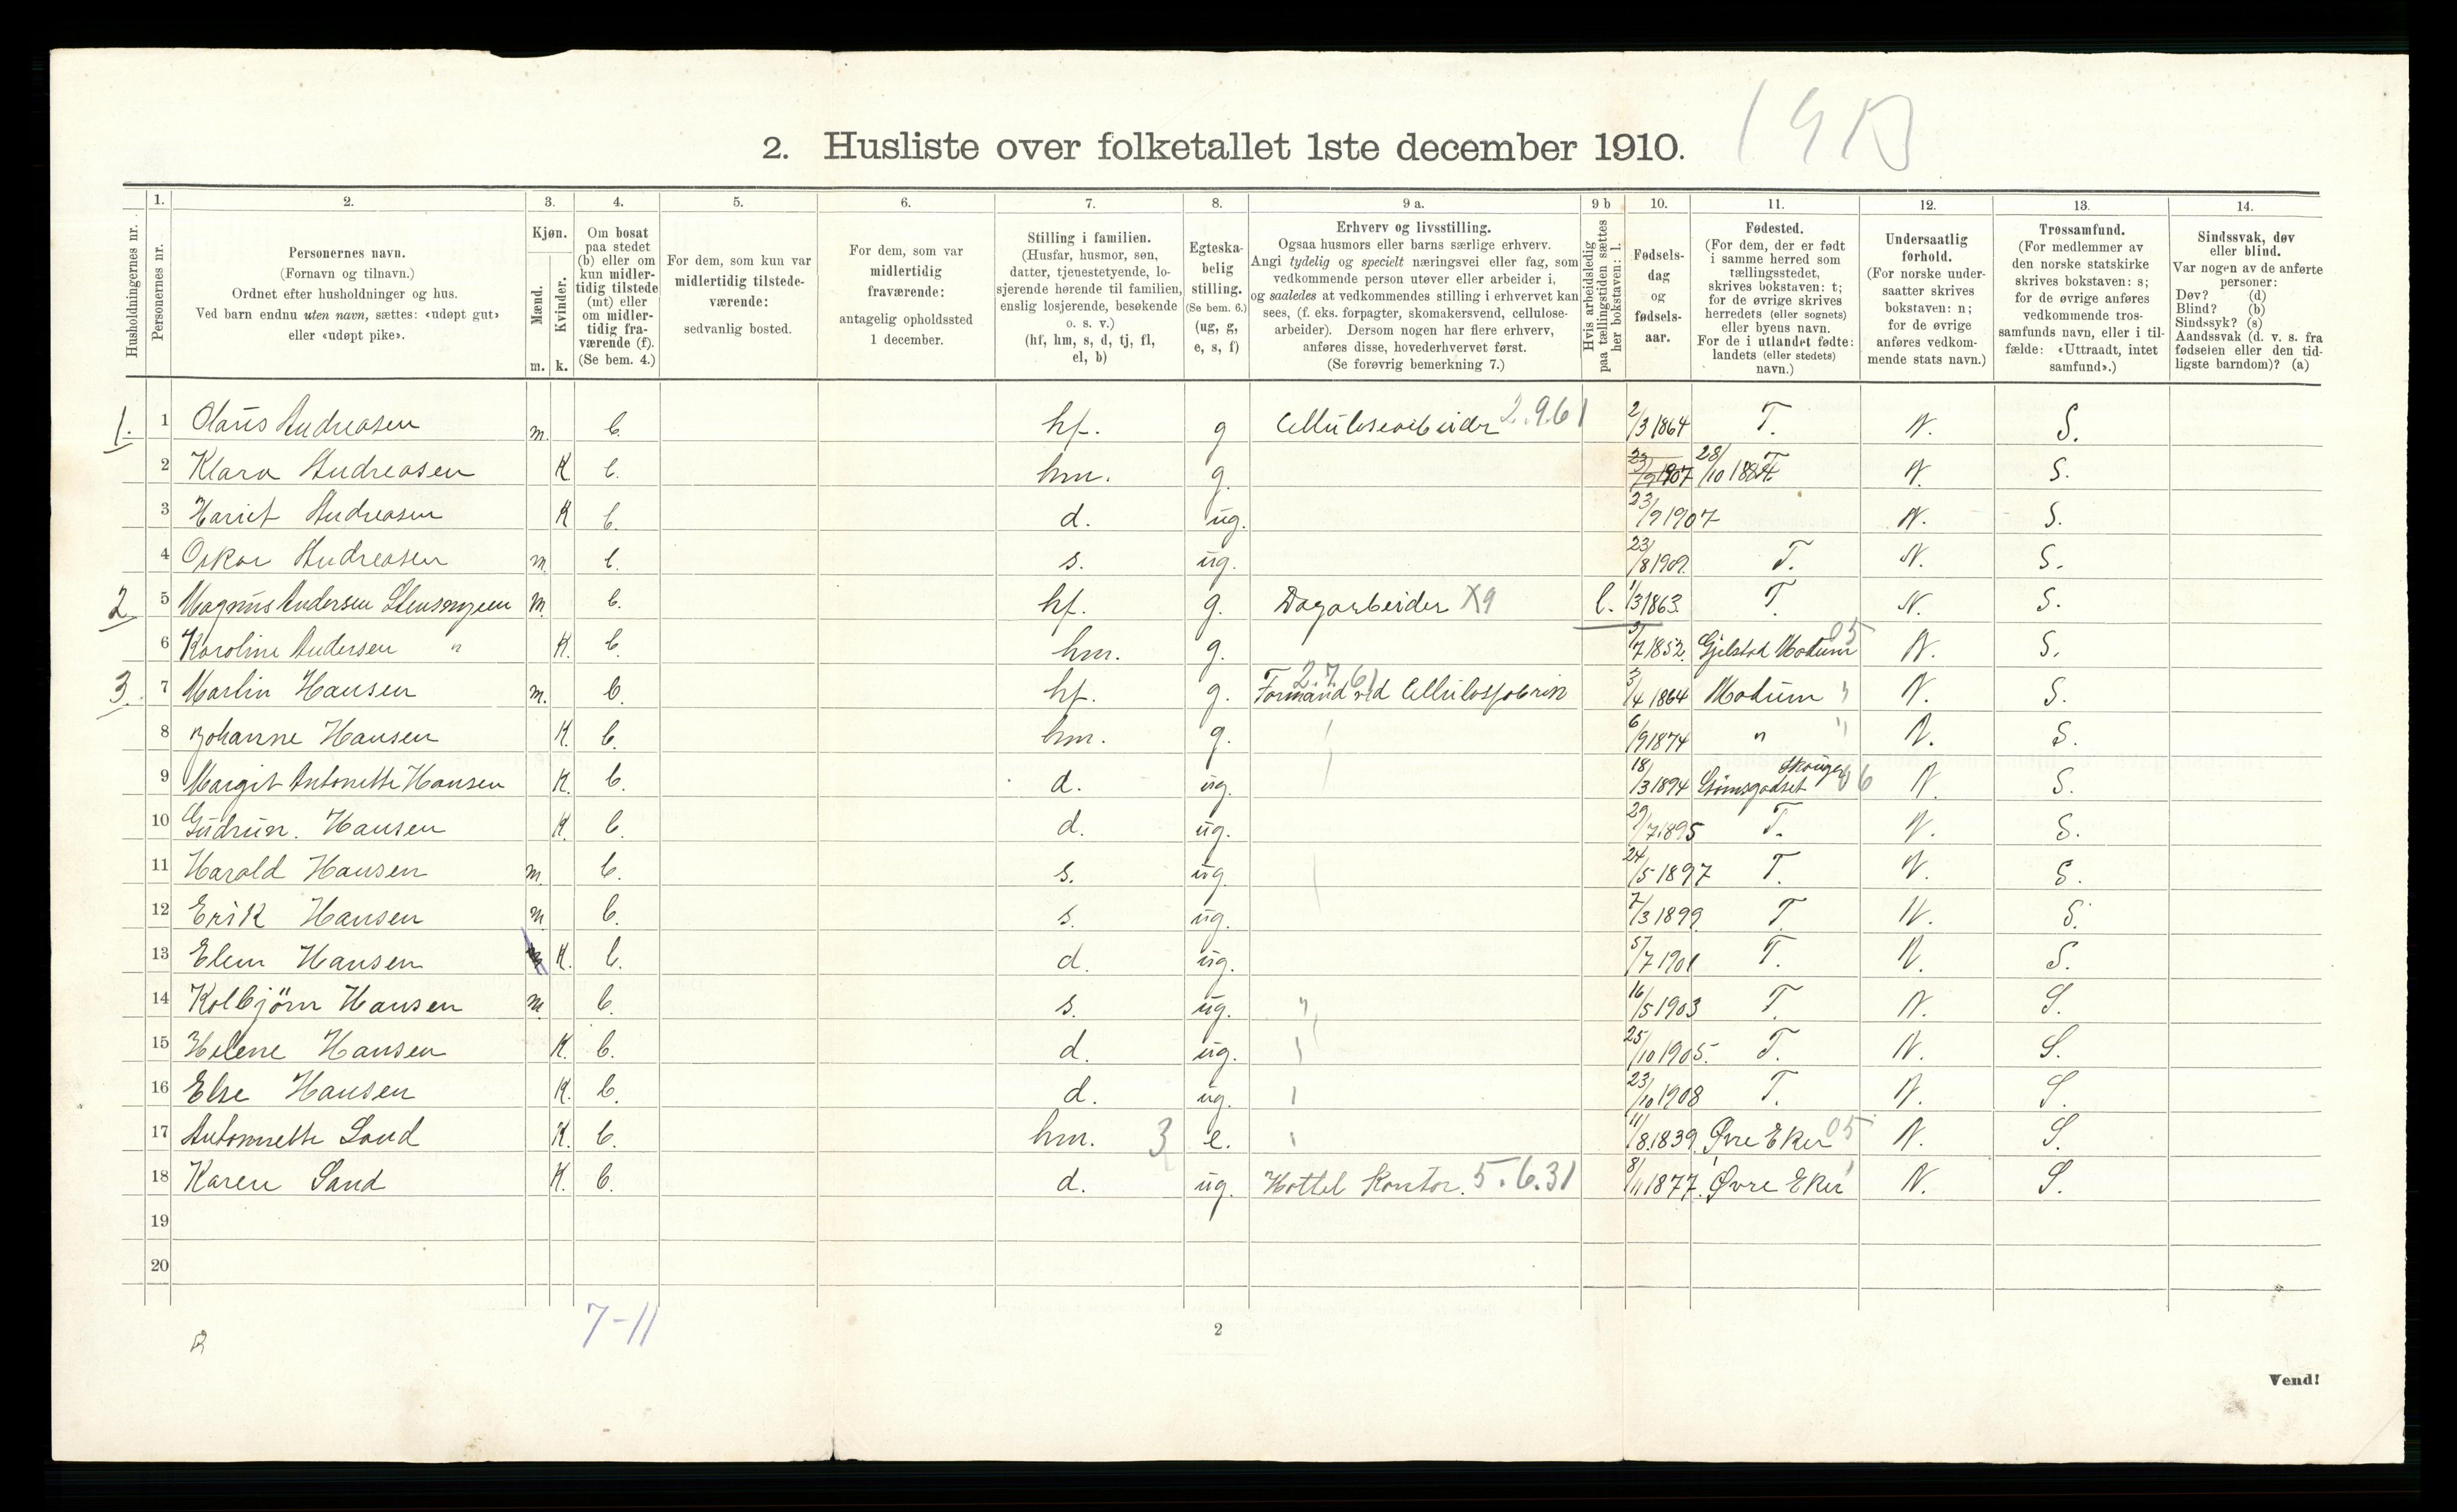 2. Husliste over folketallet 1ste december 1910.
Husholdningernes nr.
1. Personernes nr.
2. Personernes navn.
(Fornavn og tilnavn.)
Ordnet efter husholdninger og hus.
Ved barn endnu uten navn, sættes: «udøpt gut»
eller «udøpt pike».
3. Kjøn.
Mænd. Kvinder.
m. k.
4. Om bosat
paa stedet
(b) eller om
kun midler-
tidig tilstede
(mt) eller
om midler-
tidig fra-
værende (f).
(Se bem. 4.)
5. For dem, som kun var
midlertidig tilstede-
værende:
sedvanlig bosted.
6. For dem, som var
midlertidig
fraværende:
antagelig opholdssted
1 december.
7. Stilling i familien.
(Husfar, husmor, søn,
datter, tjenestetyende, lo-
sjerende hørende til familien,
enslig losjerende, besøkende
o. s. v.)
(hf, hm, s, d, tj, fl,
el, b)
8. Egteska-
belig
stilling.
(Se bem. 6.)
(ug, g,
e, s, f)
9 a. Erhverv og livsstilling.
Ogsaa husmors eller barns særlige erhverv.
Angi tydelig og specielt næringsvei eller fag, som
vedkommende person utøver eller arbeider i,
og saaledes at vedkommendes stilling i erhvervet kan
sees, (f. eks. forpagter, skomakersvend, cellulose-
arbeider). Dersom nogen har flere erhverv,
anføres disse, hovederhvervet først.
(Se forøvrig bemerkning 7.)
9 b Hvis arbeidsledig
paa tællingstiden sættes
her bokstaven: l.
10. Fødsels-
dag
og
fødsels-
aar.
11. Fødested.
(For dem, der er født
i samme herred som
tællingsstedet,
skrives bokstaven: t;
for de øvrige skrives
herredets (eller sognets)
eller byens navn.
For de i utlandet fødte:
landets (eller stedets)
navn.)
12. Undersaatlig
forhold.
(For norske under-
saatter skrives
bokstaven: n;
for de øvrige
anføres vedkom-
mende stats navn.)
13. Trossamfund.
(For medlemmer av
den norske statskirke
skrives bokstaven: s;
for de øvrige anføres
vedkommende tros-
samfunds navn, eller i til-
fælde: «Uttraadt, intet
samfund».)
14. Sindssvak, døv
eller blind.
Var nogen av de anførte
personer:
Døv? (d)
Blind? (b)
Sindssyk? (s)
Aandssvak (d. v. s. fra
fødselen eller den tid-
ligste barndom)? (a)
1. 1 Olaus Andreasen m. b. hf. g Cellulosearbeider 2.9.61 2/3 1864 T. N. S.
2 Klara Andreasen K b. hm. g. 28/10 1884 T. N. S.
3 Hariet Andreasen K b. d. ug. 23/9 1907 N. S.
4 Oskar Andreasen m b. s. ug. 23/8 1909. T. N. S.
2 5 Magnus Andersen Stensmyren m b. hf. g. Dagarbeider X9 l. 1/3 1863. T. N. S.
6 Karoline Andersen " K. b. hm. g. 5/7 1852. Gjelstad Modum 05 N. S.
3. 7 Martin Hansen m. b. hf. g. Formand ved Cellulosfabrik 2.7.61 3/4 1864 Modum " N. S.
8 Johanne Hansen K. b. hm. g. 6/9 1874 " " N. S.
9 Margit Antonette Hansen K. b. d. ug. 18/3 1894 Strømsgodset Skouger 06 N. S.
10 Gudrun. Hansen K. b. d. ug. 29/7 1895 T. N. S.
11 Harald Hansen m. b. s. ug. 24/5 1897 T. N. S.
12 Erik Hansen m. b. s. ug. 7/3 1899. T. N. S.
13 Elen Hansen K. b. d. ug. 5/7 1901 T. N. S.
14 Kolbjörn Hansen m b. s. ug. " 16/5 1903 T. N. S.
15 Helene Hansen K. b. d. ug. 25/10 1905. T. N. S.
16 Else Hansen K. b. d. ug. 23/10 1908 T. N. S.
17 Antonnette Sand K. b. hm. 3 e. 11/8. 1839. Øvre Eker 05 N. S.
18 Karen Sand K. b. d. ug. Hottel Kontor. 5.6.31 8/11 1877. Øvre Eker N. S.
19
20
7-11
2
Vend!